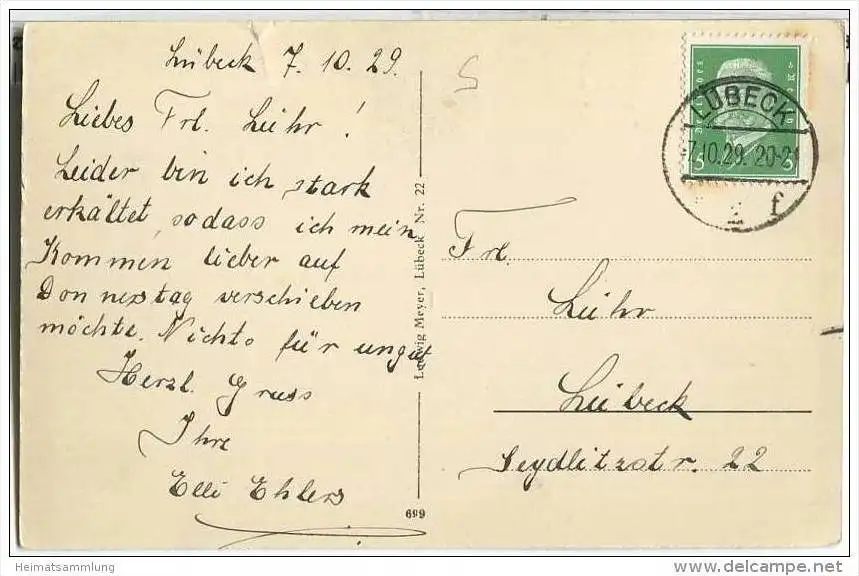 Lübeck 7.10.29.
Liebes Frl. Lühr!
Leider bin ich stark
erkältet, sodass ich mein
Kommen lieber auf
Donnerstag verschieben
möchte. Nichts für ungut
Herzl. Gruss
Ihre
Elli Ehlers
Ludwig Meyer, Lübeck Nr. 22
699
5
LÜBECK
7.10.29. 20-21
f
5
5
Frl.
Lühr
Lübeck
Seydlitzstr. 22
Heimatsammlung
delcampe.net